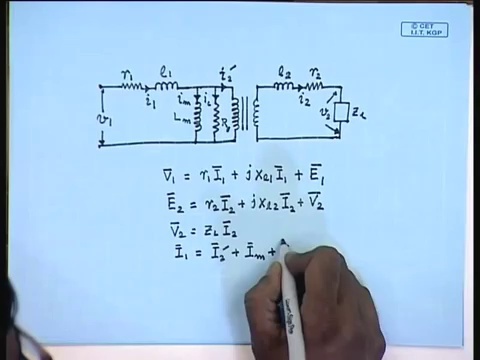 © CET
I.I.T. KGP
r₁ l₁ i₂′ l₂ r₂
i₁ iₘ i꜀ i₂
v₁ Lₘ v₂ Z_L
V̄₁ = r₁Ī₁ + jx_{l1}Ī₁ + Ē₁
Ē₂ = r₂Ī₂ + jx_{l2}Ī₂ + V̄₂
V̄₂ = Z_L Ī₂
Ī₁ = Ī₂′ + Īₘ +